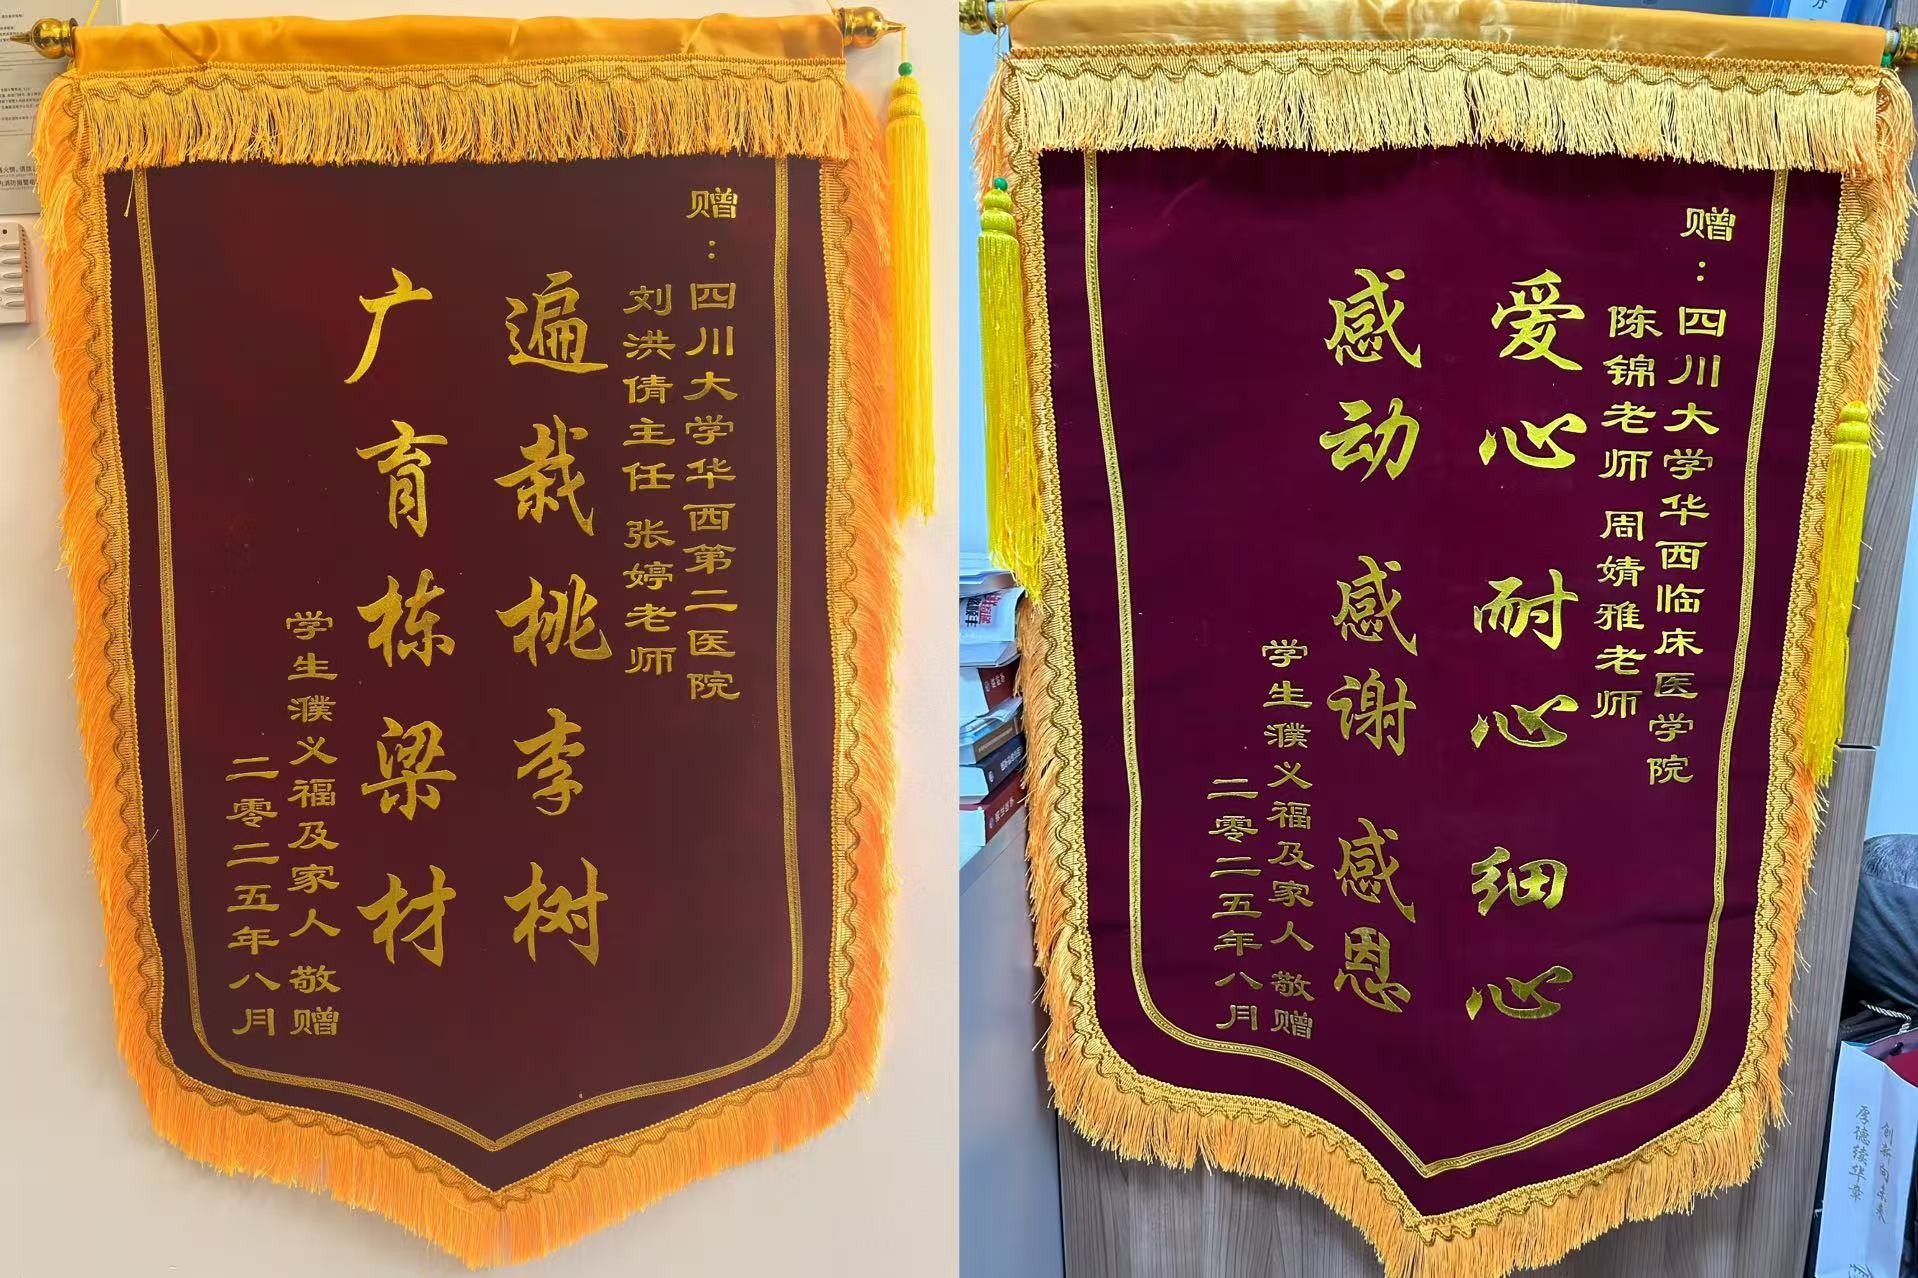 赠：四川大学华西第二医院
刘洪倩主任 张婷老师
遍栽桃李树
广育栋梁材
学生濮义福及家人 敬赠
二零二五年八月
赠：四川大学华西临床医学院
陈锦老师 周婧雅老师
爱心 耐心 细心
感动 感谢 感恩
学生濮义福及家人 敬赠
二零二五年八月
创新向未来
厚德续华章